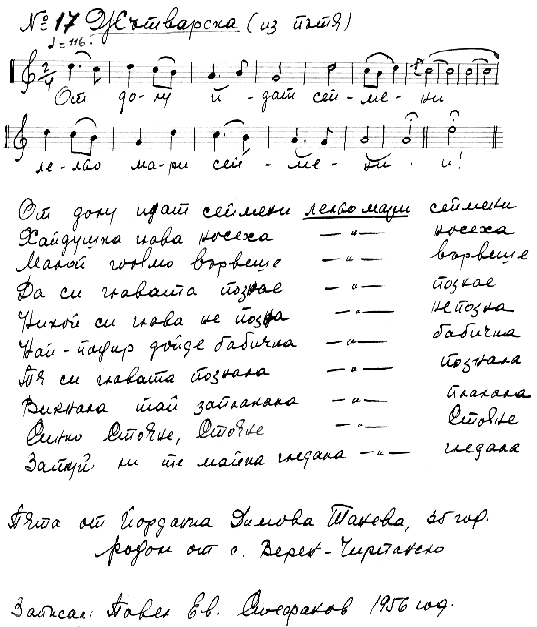 № 17 Жътварска (из пътя)
♩=116.
2/4
От до-лу и-дат сей-ме-ни
ле-льо ма-ри сей-ме-ни-и!
От долу идат сеймени льольо мари сеймени
Хайдушка глава носеха —"— носеха
Малой големо вървеше —"— вървеше
Да си главата познае —"— познае
Никой си глава не позна —"— непозна
Най-подир дойде бабичка —"— бабичка
Тя си главата познала —"— познала
Викнала тай заплакала —"— плакала
Синко Стояне, Стояне —"— Стояне
Затуй ли те майка гледала —"— гледала
Пята от Йорданка Димова Танева, 65 год.
родом от с. Верен-Чирпанско
Записал: Павел Ев. Стефанов 1956 год.